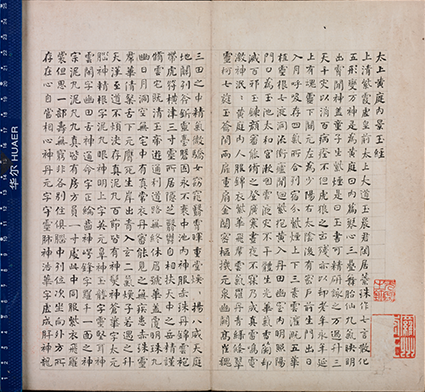 太上黄庭内景玉經
上清紫霞虛皇前太上大道玉晨君閒居蕊珠作七言散化
五形變萬神是為黄庭曰内篇琴心三疊舞胎仙九氣映明
出霄間神蓋童子生紫煙是曰玉書可精研詠之萬過昇三
天千災以消百病痊不憚虎狼之凶殘亦以却老年永延
上有魂靈下關元左為少陽右太陰後有密戶前生門出日
入月呼吸存四氣所合列宿分紫煙上下三素雲灌溉五華
植靈根七液洞流衝廬間迴紫抱黄入丹田幽室内明照陽
門口為玉池太和官漱咽靈液災不干體生光華氣香蘭却
滅百邪玉鍊顏審能修之登廣寒晝夜不寐乃成真雷鳴電
激神泯泯黄庭内人服錦衣紫華飛裙雲氣羅丹青綠條翠
靈柯七蕤玉籥閉兩扉重扇金關密樞機玄泉幽關高崔巍
三田之中精氣微嬌女窈窕翳霄暉重堂煥煥揚八威天庭
地關列斧斤靈臺盤固永不衰中池内神服赤珠丹錦雲袍
帶虎符橫津三寸靈所居隱芝翳鬱自相扶天中之岳精謹
修雲宅既清玉帝遊通利道路無終休眉號華蓋覆明珠九
幽日月洞空無宅中有真常衣丹審能見之無病患赤珠靈
裙華蒨粲舌下玄膺生死岸出青入玄二氣煥子若遇之昇
天漢至道不煩決存真泥丸百節皆有神髮神蒼華字太元
腦神精根字泥丸眼神明上字英玄鼻神玉壟字靈堅耳神
空閑字幽田舌神通命字正綸齒神崿鋒字羅千一面之神
宗泥丸泥丸九真皆有房方圓一寸處此中同服紫衣飛羅
裳但思一部壽無窮非各別住俱腦中列位次坐向外方所
存在心自當相心神丹元字守靈肺神皓華字虛成肝神龍
华尔 HUAER